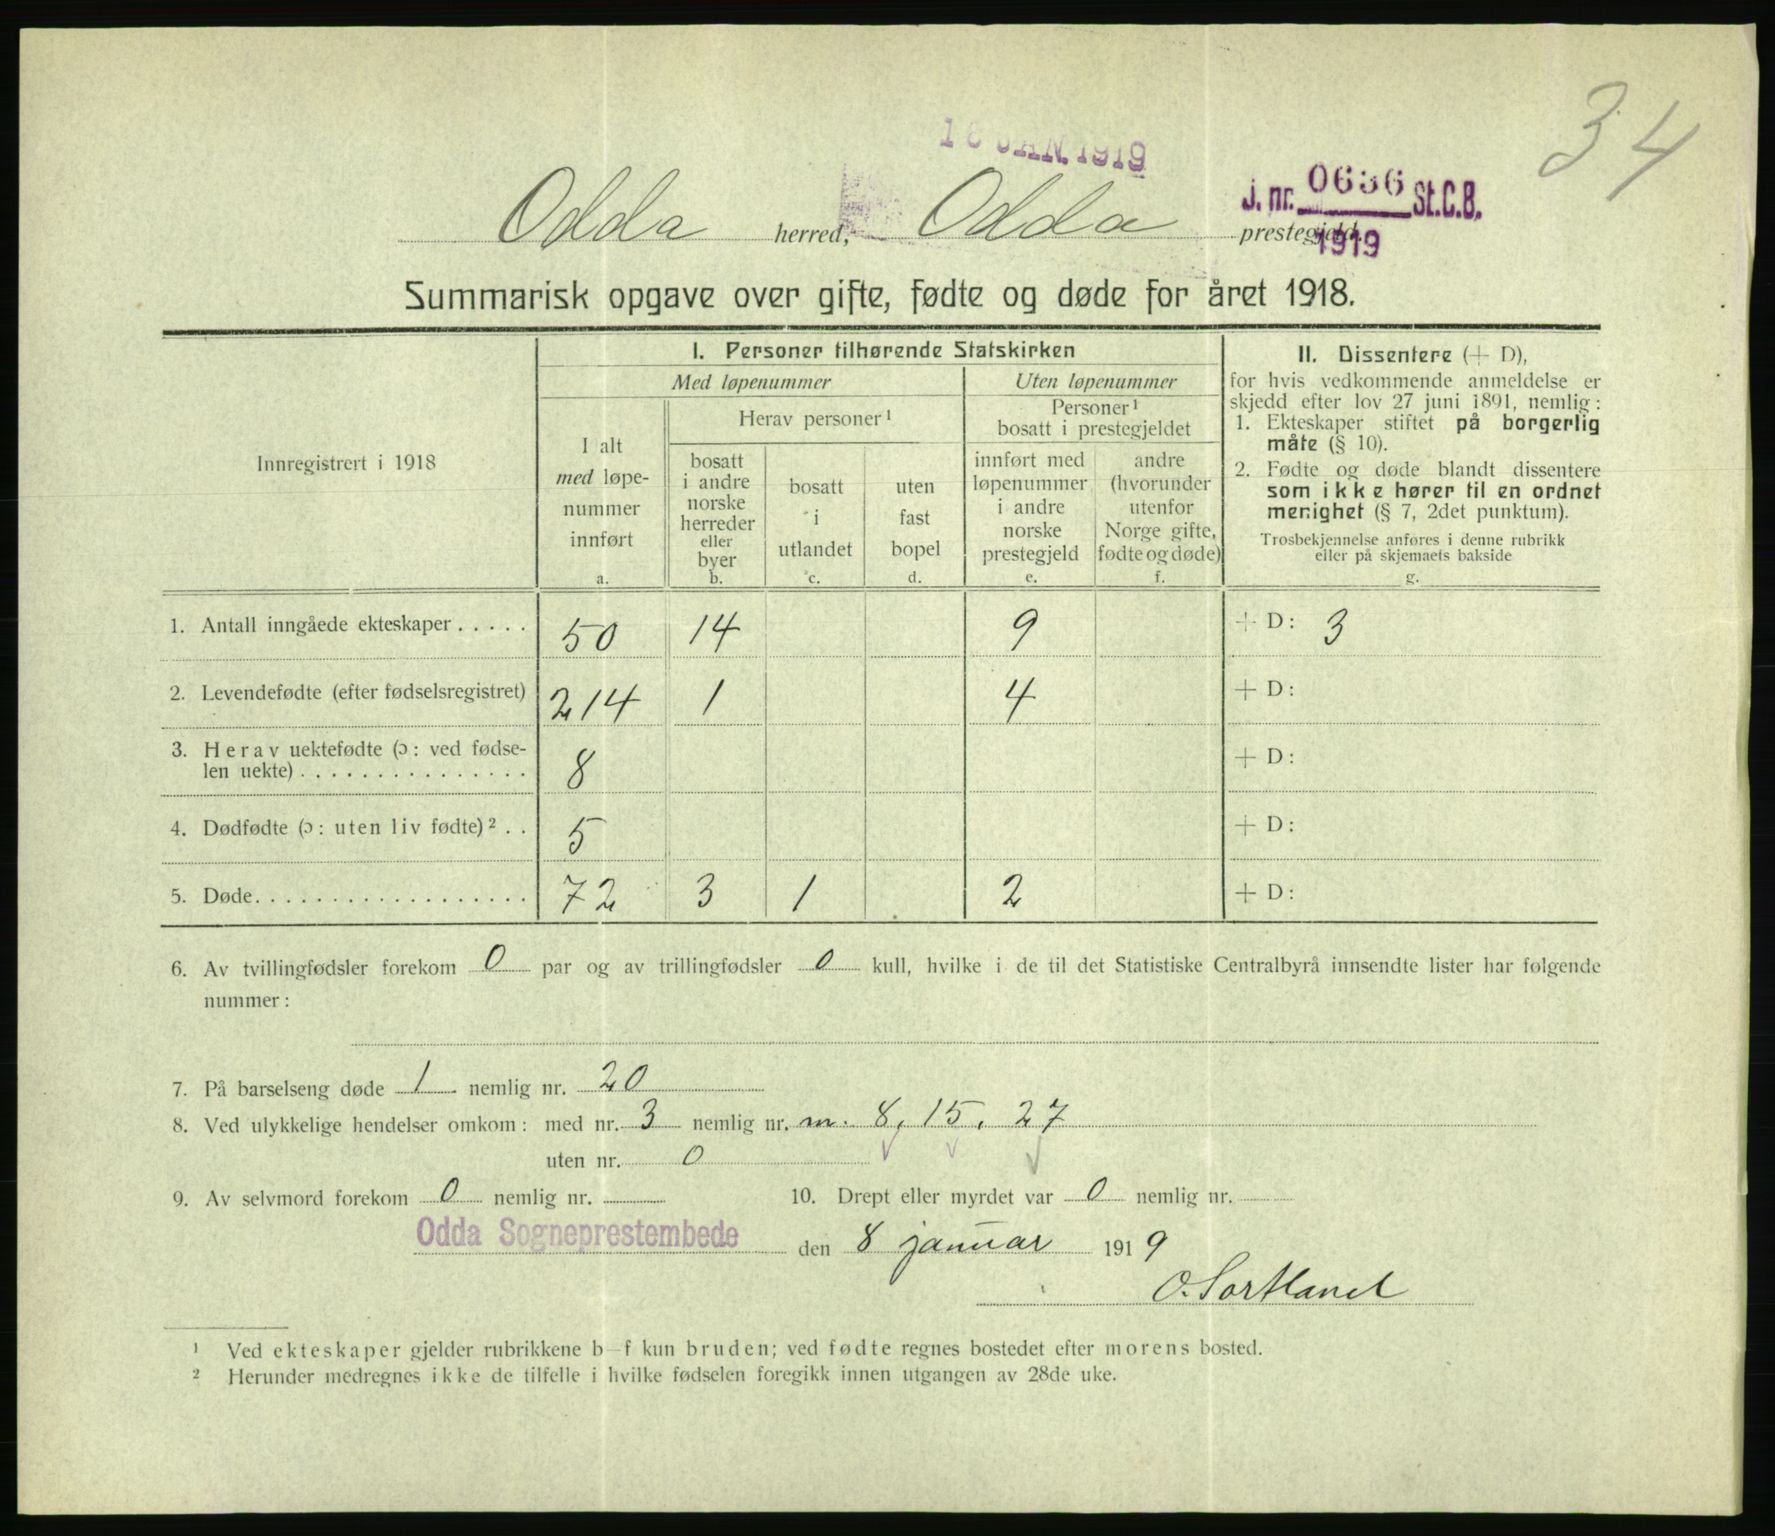 34
JAN 1919
J. nr. 0636 St.C.B.
1919
Odda herred, Odda prestegjeld.
Summarisk opgave over gifte, fødte og døde for året 1918.
Innregistrert i 1918
I. Personer tilhørende Statskirken
Med løpenummer
Uten løpenummer
I alt
med løpe-
nummer
innført
a.
Herav personer ¹
bosatt
i andre
norske
herreder
eller
byer
b.
bosatt
i
utlandet
c.
uten
fast
bopel
d.
Personer ¹
bosatt i prestegjeldet
innført med
løpenummer
i andre
norske
prestegjeld
e.
andre
(hvorunder
utenfor
Norge gifte,
fødte og døde)
f.
II. Dissentere (+ D),
for hvis vedkommende anmeldelse er
skjedd efter lov 27 juni 1891, nemlig:
1. Ekteskaper stiftet på borgerlig
måte (§ 10).
2. Fødte og døde blandt dissentere
som ikke hører til en ordnet
menighet (§ 7, 2det punktum).
Trosbekjennelse anføres i denne rubrikk
eller på skjemaets bakside
g.
1. Antall inngåede ekteskaper . . . . . 50 14 9 + D: 3
2. Levendefødte (efter fødselsregistret) 214 1 4 + D:
3. Herav uektefødte (ɔ: ved fødse-
len uekte) . . . . . . . . . . . . . . . 8 + D:
4. Dødfødte (ɔ: uten liv fødte) ² . . 5 + D:
5. Døde. . . . . . . . . . . . . . . . . . 72 3 1 2 + D:
6. Av tvillingfødsler forekom 0 par og av trillingfødsler 0 kull, hvilke i de til det Statistiske Centralbyrå innsendte lister har følgende
nummer:
7. På barselseng døde 1 nemlig nr. 20
8. Ved ulykkelige hendelser omkom: med nr. 3 nemlig nr. m. 8, 15, 27
uten nr. 0
9. Av selvmord forekom 0 nemlig nr. 10. Drept eller myrdet var 0 nemlig nr.
Odda Sogneprestembede den 8 januar 1919
O. Sortland
¹ Ved ekteskaper gjelder rubrikkene b—f kun bruden; ved fødte regnes bostedet efter morens bosted.
² Herunder medregnes ikke de tilfelle i hvilke fødselen foregikk innen utgangen av 28de uke.